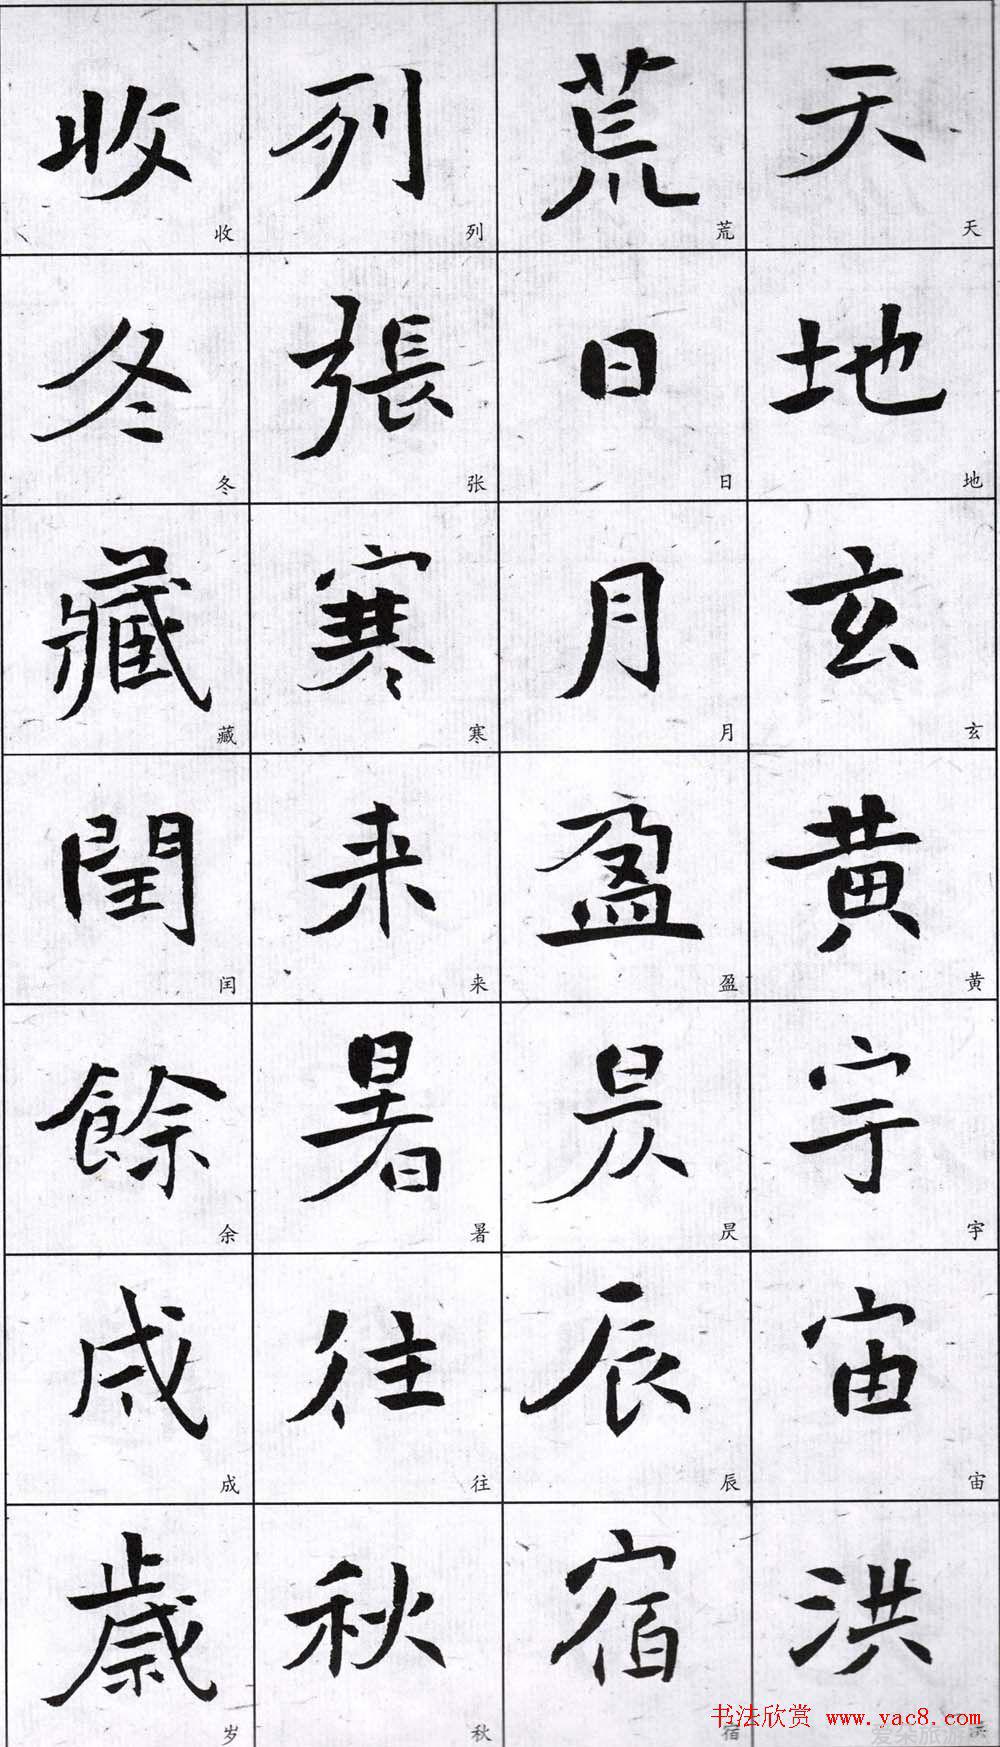 天地玄黄宇宙洪
天地玄黄宇宙
荒日月盈昃辰宿
荒日月盈昃辰宿
列張寒来暑往秋
列张寒来暑往秋
收冬藏閏餘成歲
收冬藏闰余成岁
书法欣赏 www.yac8.com